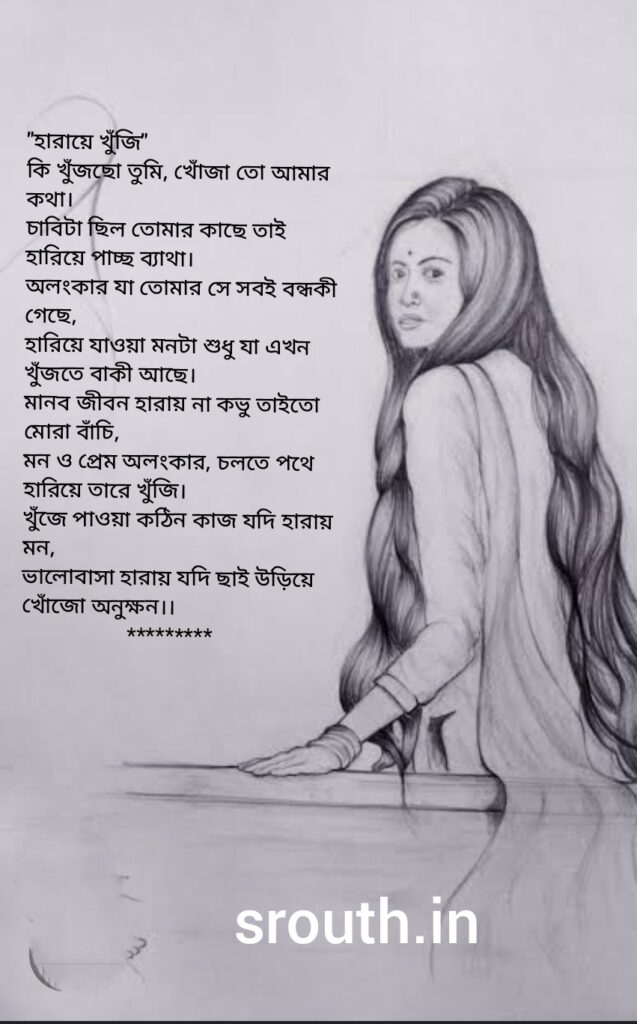 "হারায়ে খুঁজি"
কি খুঁজছো তুমি, খোঁজা তো আমার
কথা।
চাবিটা ছিল তোমার কাছে তাই
হারিয়ে পাচ্ছ ব্যাথা।
অলংকার যা তোমার সে সবই বন্ধকী
গেছে,
হারিয়ে যাওয়া মনটা শুধু যা এখন
খুঁজতে বাকী আছে।
মানব জীবন হারায় না কভু তাইতো
মোরা বাঁচি,
মন ও প্রেম অলংকার, চলতে পথে
হারিয়ে তারে খুঁজি।
খুঁজে পাওয়া কঠিন কাজ যদি হারায়
মন,
ভালোবাসা হারায় যদি ছাই উড়িয়ে
খোঁজো অনুক্ষন।।
*********
srouth.in